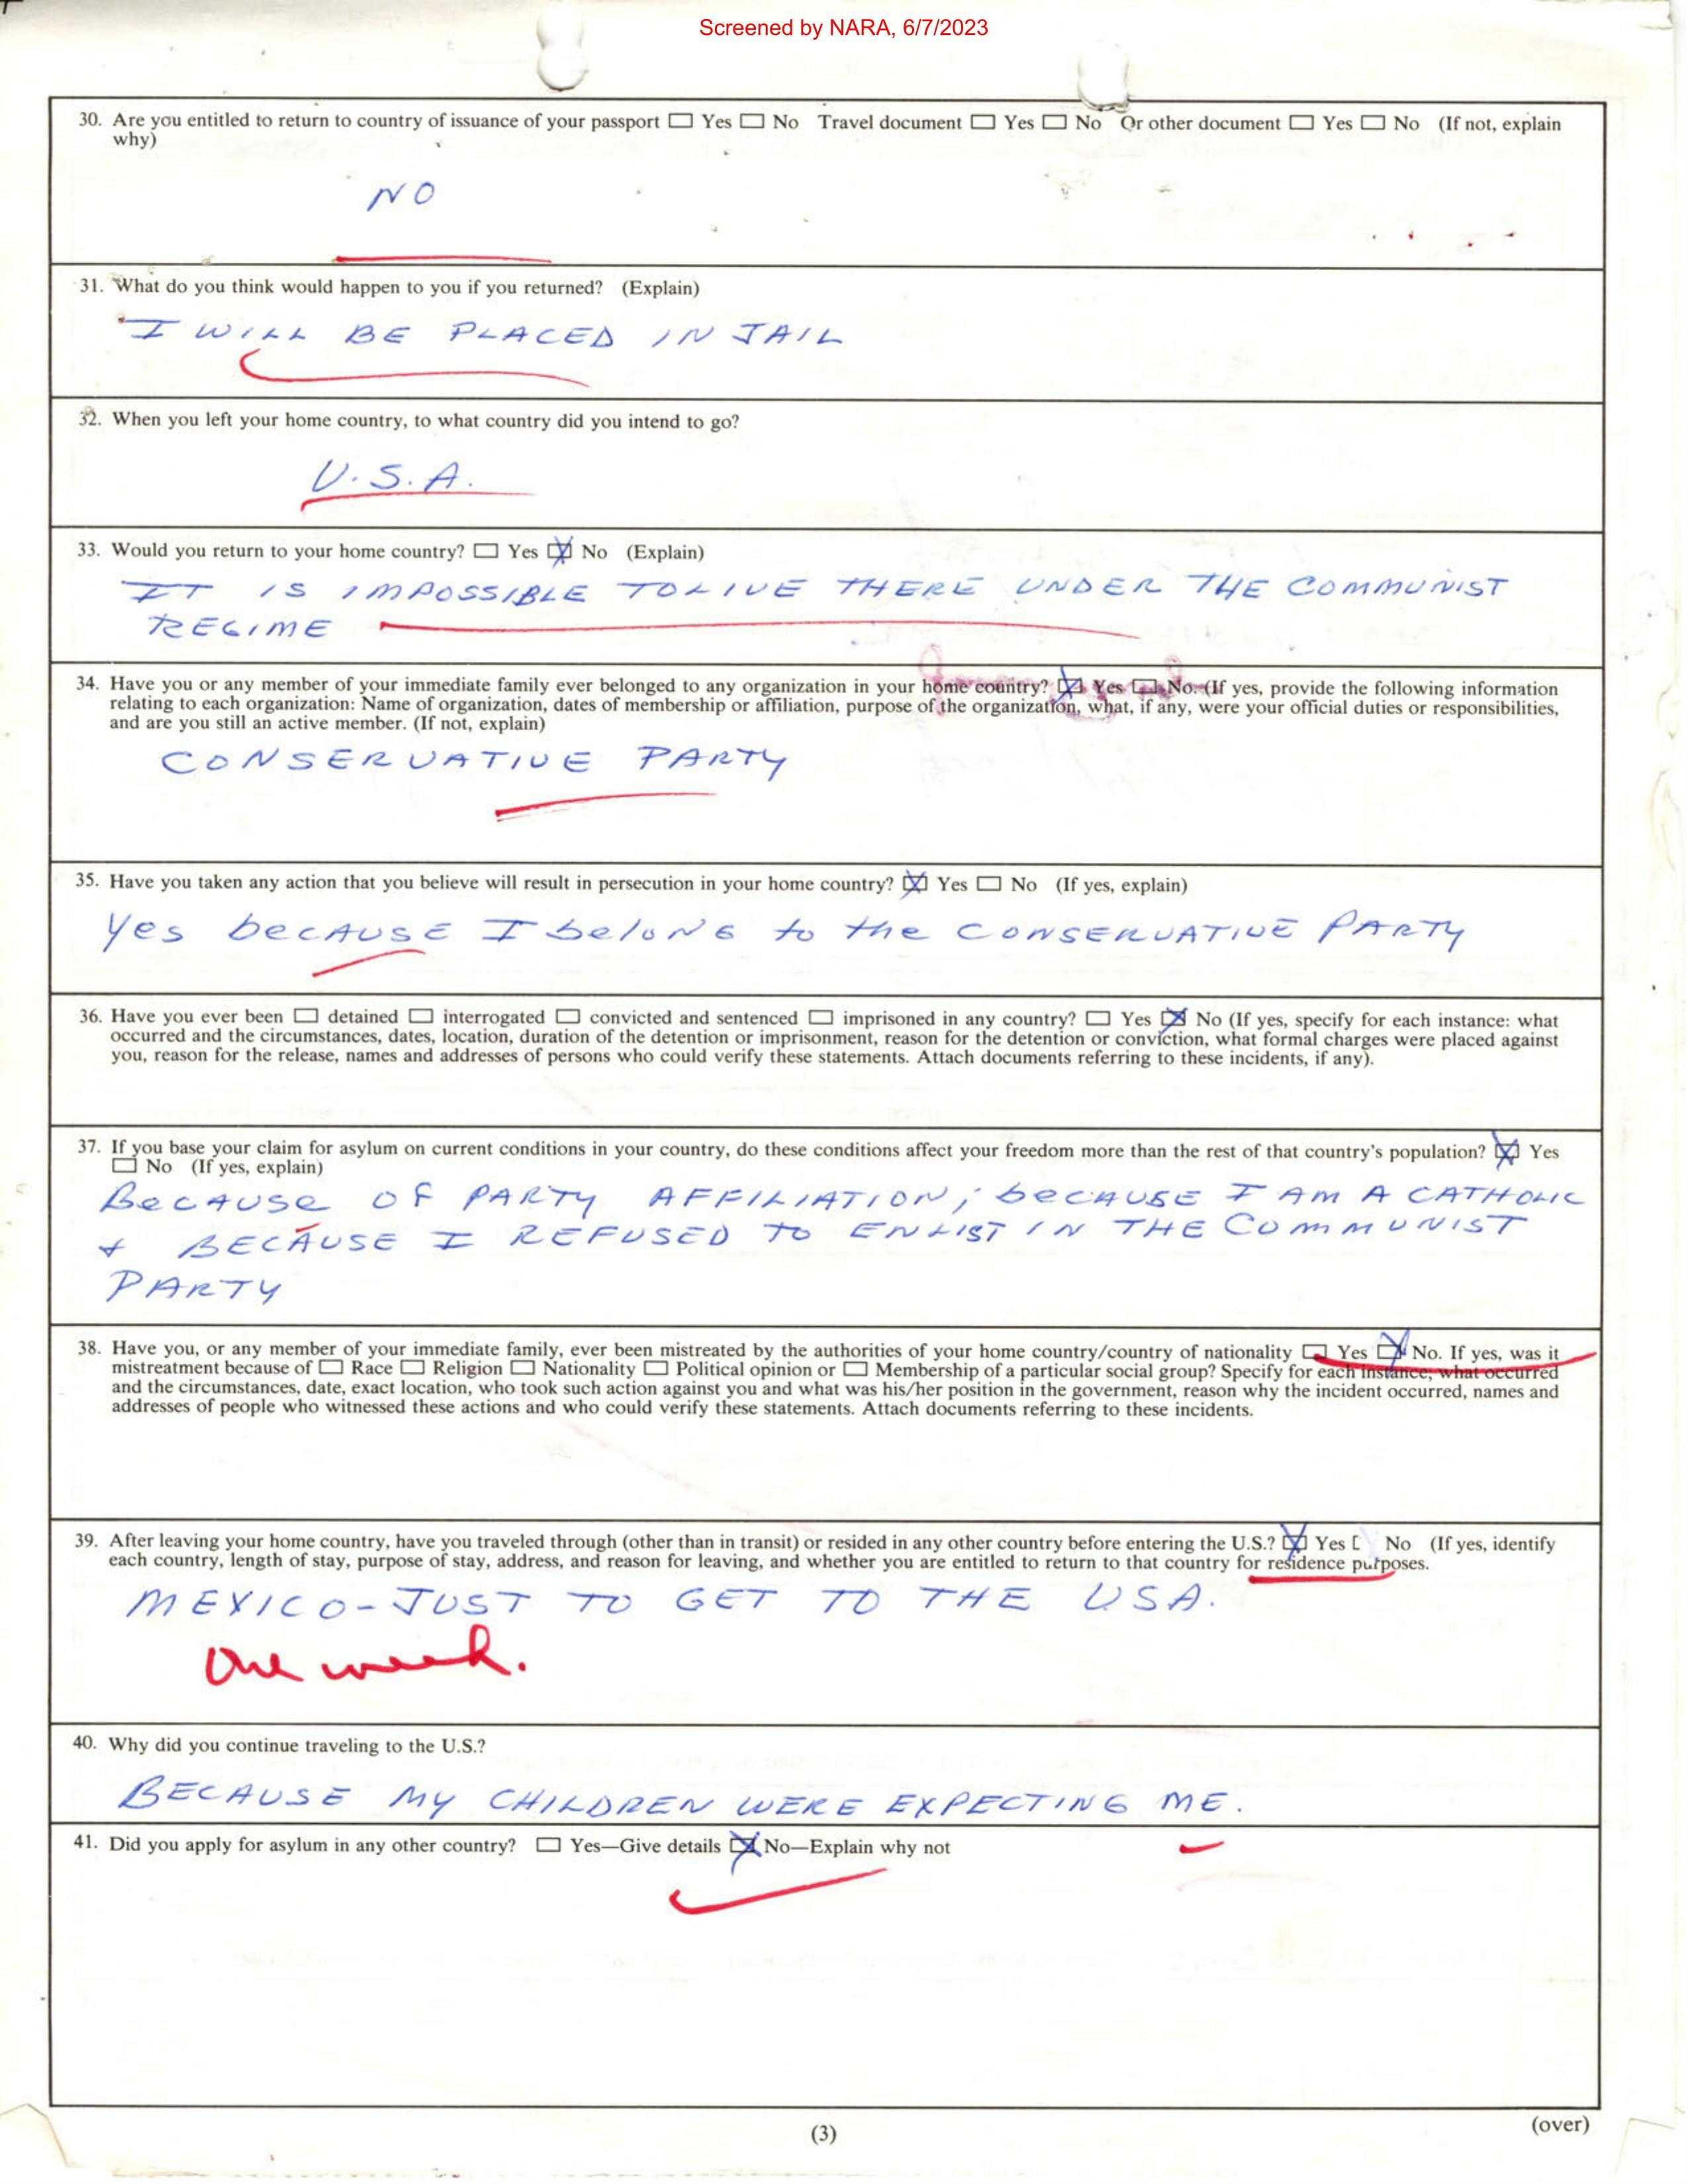 Screened by NARA, 6/7/2023
30. Are you entitled to return to country of issuance of your passport ☐ Yes ☐ No Travel document ☐ Yes ☐ No Or other document ☐ Yes ☐ No (If not, explain
why)
NO
31. What do you think would happen to you if you returned? (Explain)
I WILL BE PLACED IN JAIL
32. When you left your home country, to what country did you intend to go?
U.S.A.
33. Would you return to your home country? ☐ Yes ☒ No (Explain)
IT IS IMPOSSIBLE TO LIVE THERE UNDER THE COMMUNIST
REGIME
34. Have you or any member of your immediate family ever belonged to any organization in your home country? ☒ Yes ☐ No. (If yes, provide the following information
relating to each organization: Name of organization, dates of membership or affiliation, purpose of the organization, what, if any, were your official duties or responsibilities,
and are you still an active member. (If not, explain)
CONSERVATIVE PARTY
35. Have you taken any action that you believe will result in persecution in your home country? ☒ Yes ☐ No (If yes, explain)
Yes because I belong to the CONSERVATIVE PARTY
36. Have you ever been ☐ detained ☐ interrogated ☐ convicted and sentenced ☐ imprisoned in any country? ☐ Yes ☒ No (If yes, specify for each instance: what
occurred and the circumstances, dates, location, duration of the detention or imprisonment, reason for the detention or conviction, what formal charges were placed against
you, reason for the release, names and addresses of persons who could verify these statements. Attach documents referring to these incidents, if any).
37. If you base your claim for asylum on current conditions in your country, do these conditions affect your freedom more than the rest of that country's population? ☒ Yes
☐ No (If yes, explain)
BECAUSE OF PARTY AFFILIATION; because I AM A CATHOLIC
+ BECAUSE I REFUSED TO ENLIST IN THE COMMUNIST
PARTY
38. Have you, or any member of your immediate family, ever been mistreated by the authorities of your home country/country of nationality ☐ Yes ☒ No. If yes, was it
mistreatment because of ☐ Race ☐ Religion ☐ Nationality ☐ Political opinion or ☐ Membership of a particular social group? Specify for each instance; what occurred
and the circumstances, date, exact location, who took such action against you and what was his/her position in the government, reason why the incident occurred, names and
addresses of people who witnessed these actions and who could verify these statements. Attach documents referring to these incidents.
39. After leaving your home country, have you traveled through (other than in transit) or resided in any other country before entering the U.S.? ☒ Yes ☐ No (If yes, identify
each country, length of stay, purpose of stay, address, and reason for leaving, and whether you are entitled to return to that country for residence purposes.
MEXICO - JUST TO GET TO THE USA.
One week.
40. Why did you continue traveling to the U.S.?
BECAUSE MY CHILDREN WERE EXPECTING ME.
41. Did you apply for asylum in any other country? ☐ Yes—Give details ☒ No—Explain why not
(3)
(over)